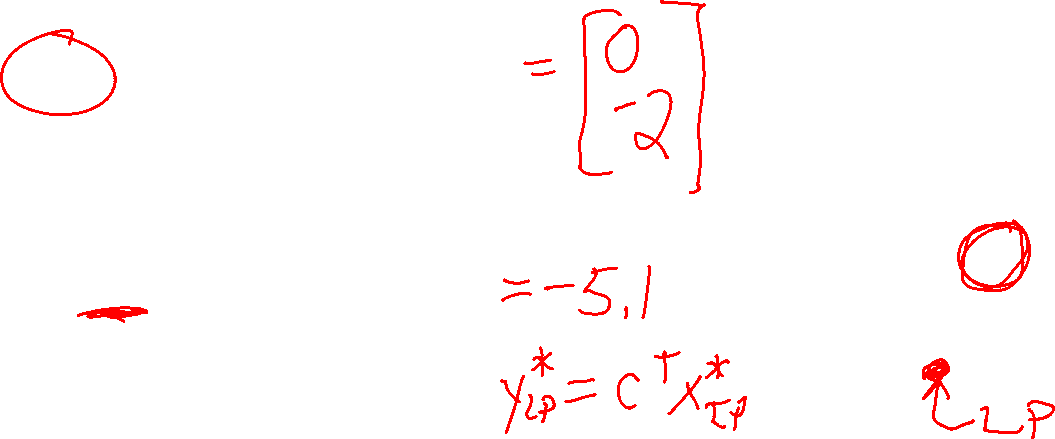 = [0
-2]
= -5.1
y*_LP = c^T x*_IP
LP